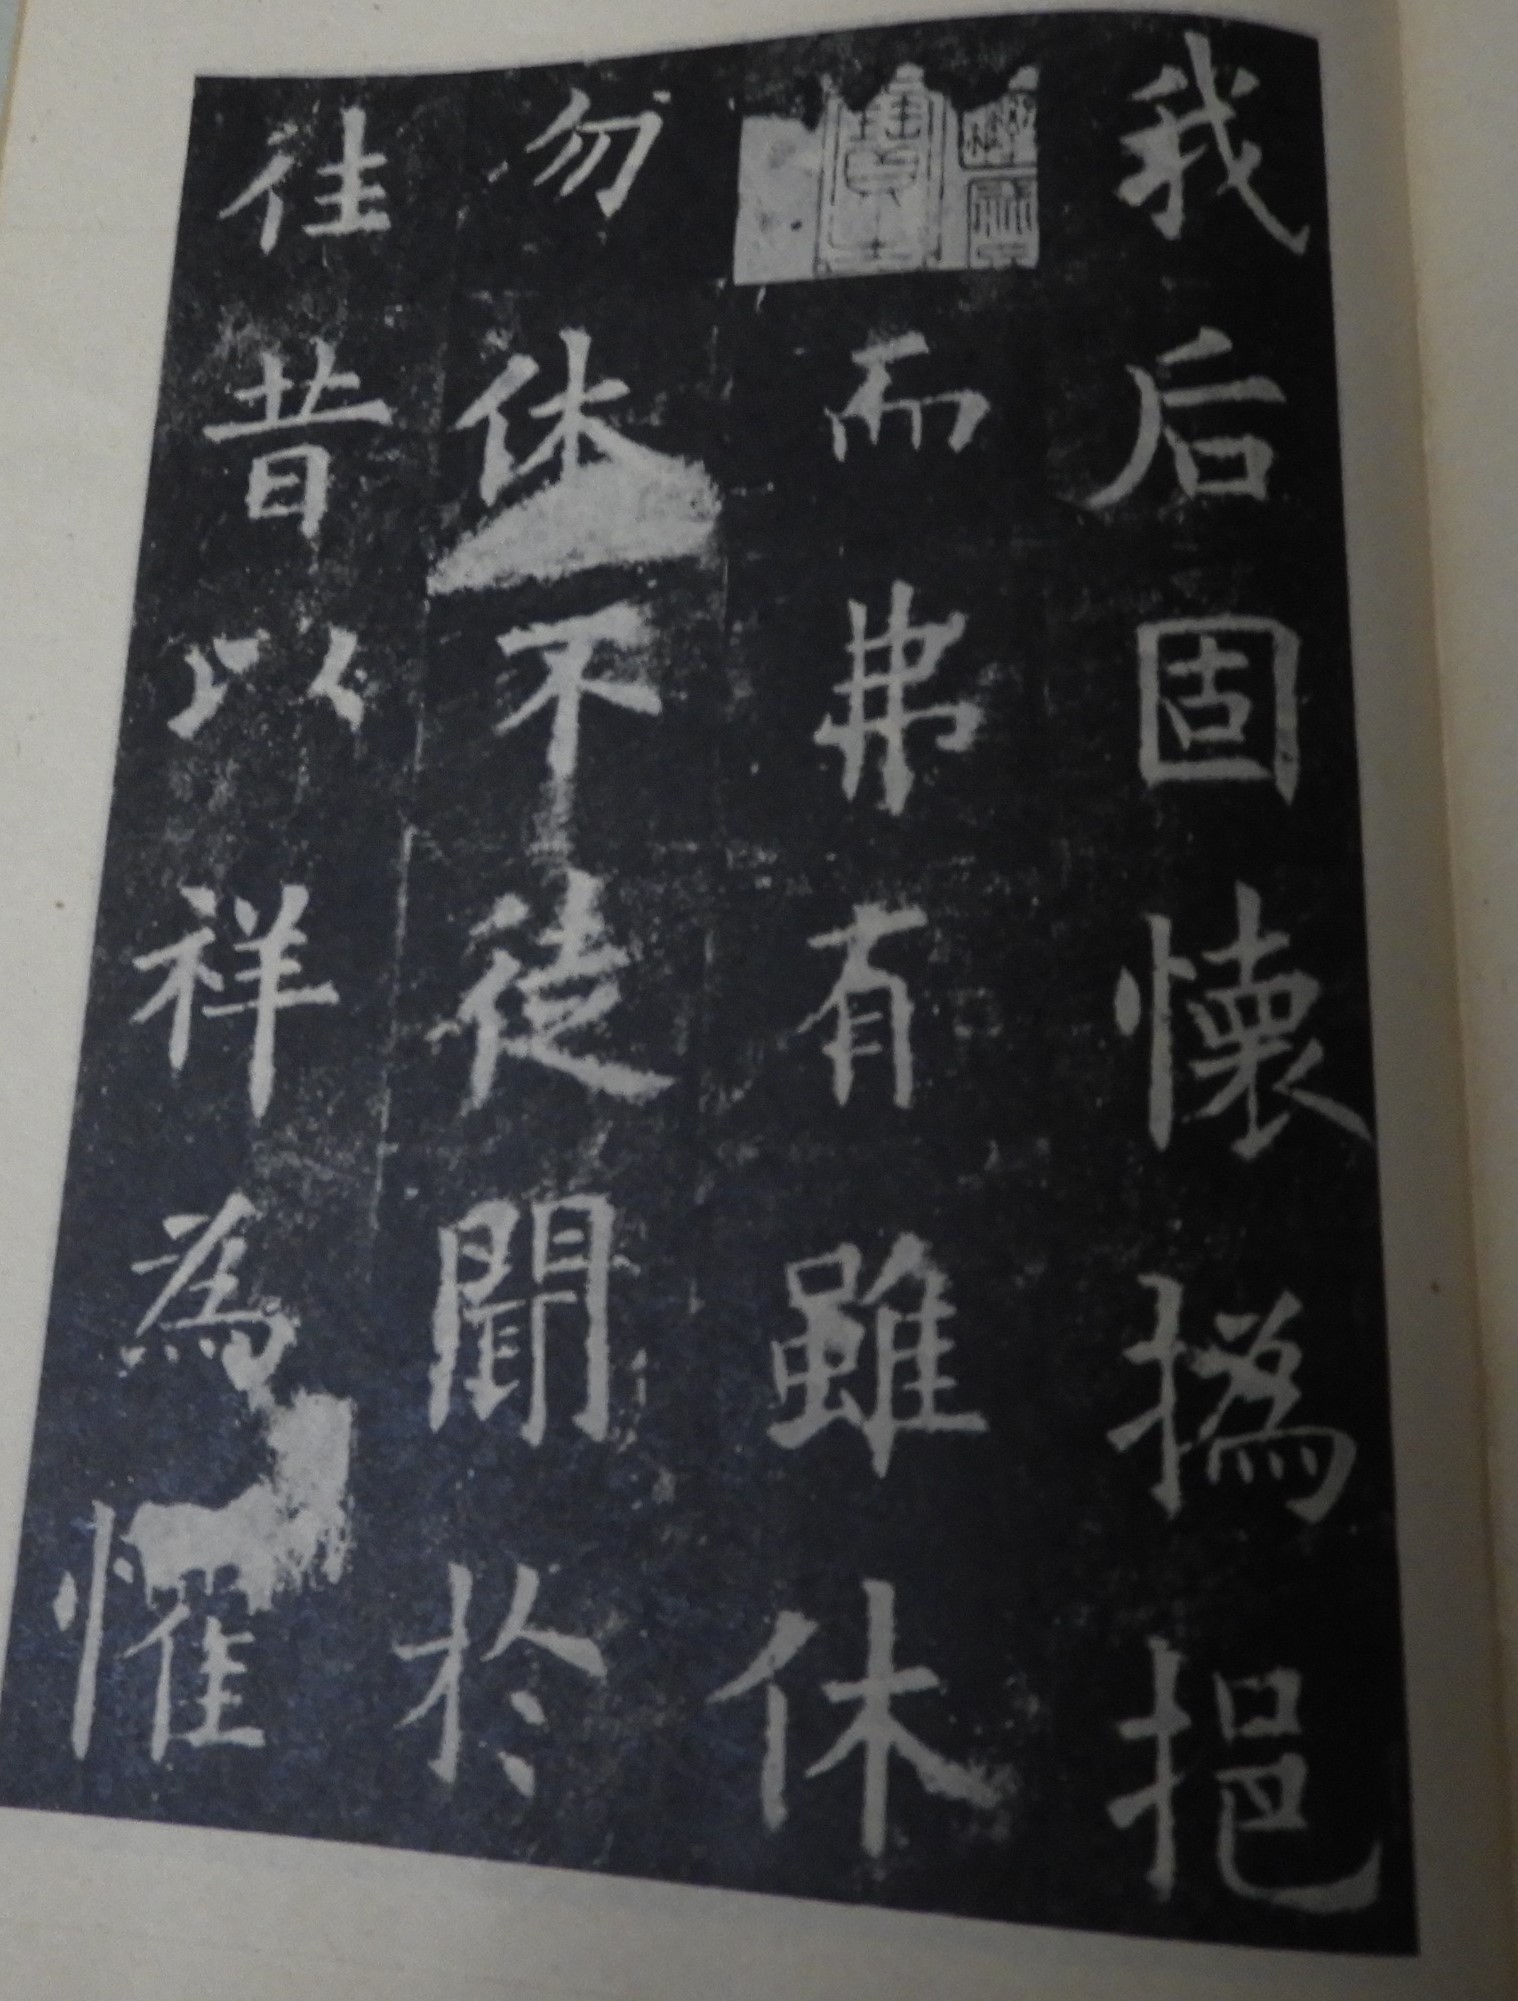 我后固懷撝挹
而弗有雖休
勿休不徒聞於
往昔以祥為惟